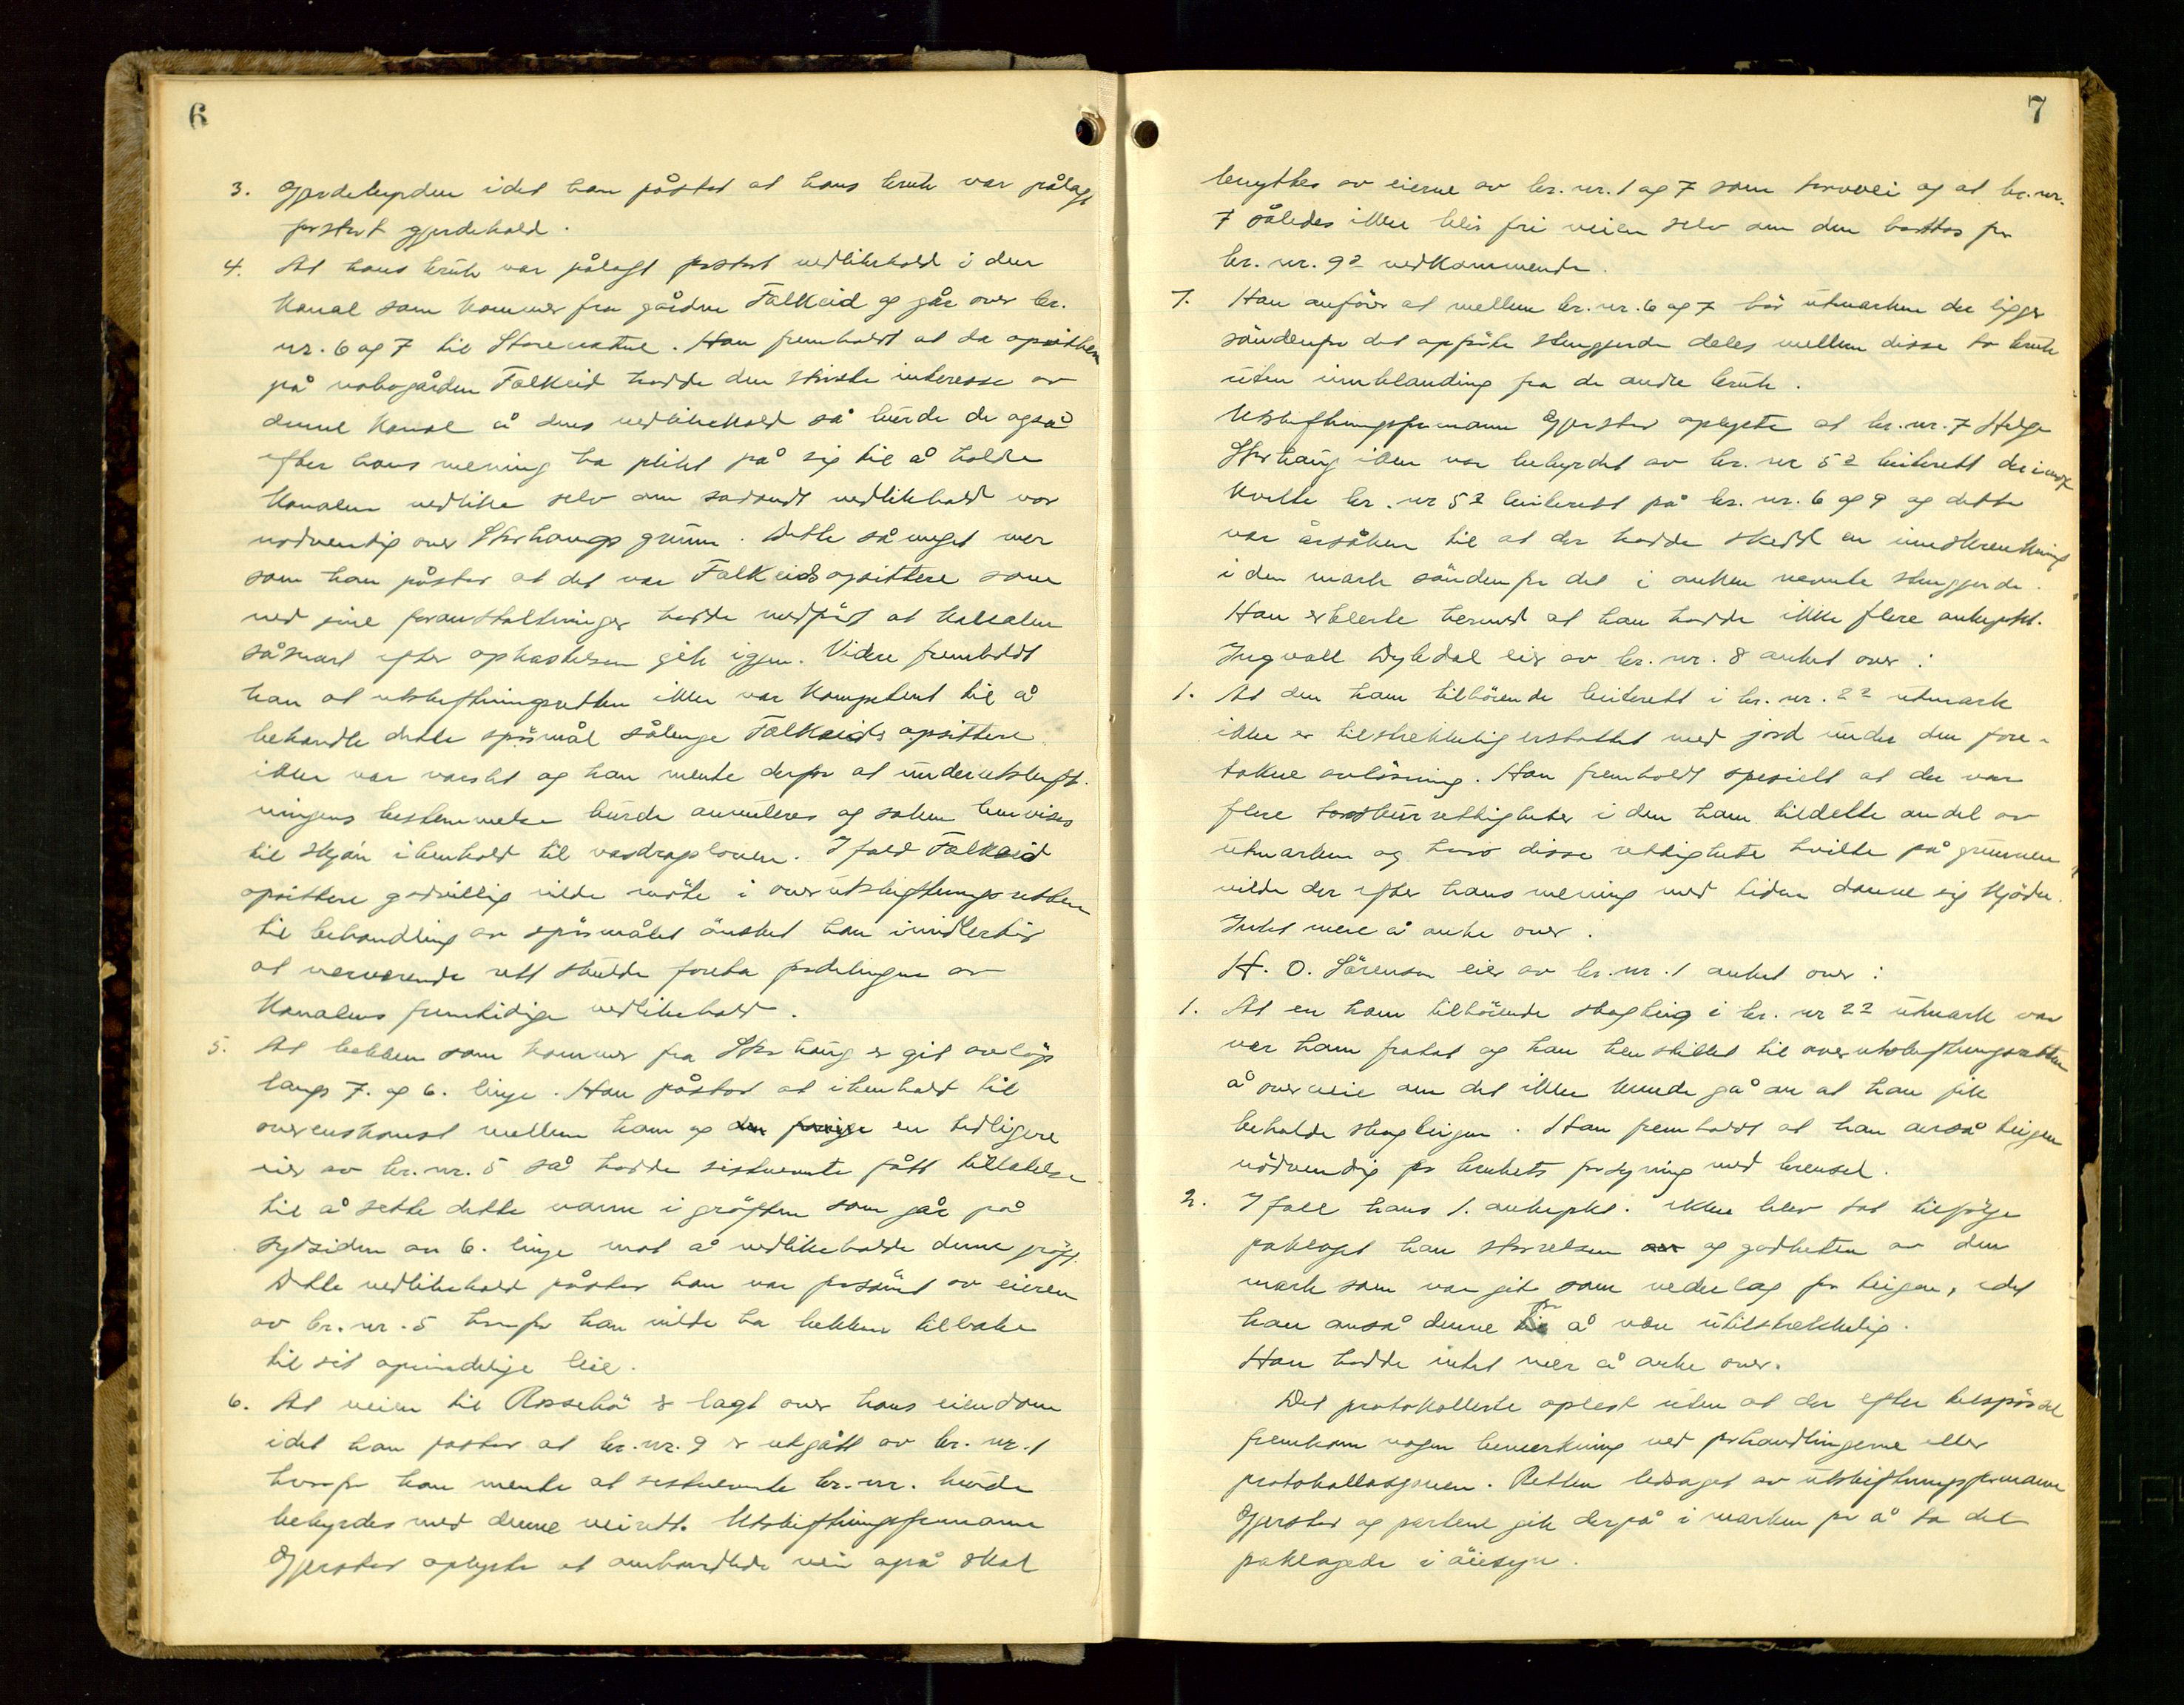 6
3. Gjerdebyrden idet han påstod at hans bruk var pålagt
forstort gjerdehold.
4. At hans bruk var pålagt forstort vedlikehold i den
kanal som kommer fra gården Falkeid og går over br.
nr. 6 og 7 til Storevatne. Han fremholdt at da opsitterne
på nabogården Falkeid hadde den største interesse av
denne kanal å dens vedlikehold så burde de også
efter hans mening ha plikt på sig til å holde
kanalen vedlike selv om sådandt vedlikehold var
nødvendig over Storhaugs grunn. Dette så meget mer
som han påstod at det var Falkeids opsittere som
ved sine foranstaltninger hadde medført at kanalen
såsnart efter opkastelsen gik igjen. Videre fremholdt
han at utskiftningsretten ikke var kompetent til å
behandle dette spörsmål sålenge Falkeids opsittere
ikke var varslet og han mente derfor at underutskift-
ningens bestemmelse burde annuleres og saken henvises
til skjön i henhold til vasdragsloven. Ifald Falkeid
opsittere godvillig vilde möte i overutskiftningsretten
til behandling av spörsmålet önsket han imidlertid
at nærværende rett skulde foreta fordelingen av
kanalens fremtidige vedlikehold.
5. At bekken som kommer fra Storhaug er git avlöp
langs 7. og 6. linje. Han påstod at i henhold til
overenskomst mellem ham og den forrige en tidligere
eier av br. nr. 5 så hadde sistnevnte fått tillatelse
til å sette dette vann i gröften som går på
sydsiden av 6. linje mot å vedlikeholde denne gröft.
Dette vedlikehold påstod han var forsömt av eieren
av br. nr. 5 hvorfor han vilde ha bekken tilbake
til sit oprindelige leie.
6. At veien til Rossehö er lagt over hans eiendom
idet han påstod at br. nr. 9 er utgått av br. nr. 1
hvorfor han mente at sistnevnte br. nr. burde
bebyrdes med denne veirett. Utskiftningsformann
Gjerstad oplyste at omhandlede vei også skal
7
benyttes av eierne av br. nr. 1 og 7 som torvvei og at br. nr.
7 således ikke blir fri veien selv om den bortfos for
br. nr. 9² vedkommende.
7. Han anförer at mellem br. nr. 6 og 7 bör utmarken der ligger
söndenfor det opförte stengjerde deles mellem disse to bruk
uten innblanding fra de andre bruk.
Utskiftningsformann Gjerstad oplyste at br. nr. 7 Helge
Storhaug ikke var bebyrdet av br. nr 5² beiterett derimot
hvilte br. nr 5² beiterett på br. nr. 6 og 9 og dette
var årsåken til at der hadde skedd en innskrenkning
i den mark söndenfor det i anken nevnte stengjerde.
Han erklerte hermed at han hadde ikke flere ankepkt.
Ingvall Dybdal eier av br. nr. 8 anket over:
1. At den ham tilhörende beiterett i br. nr. 2² utmark
ikke er tilstrekkelig erstattet med jord under den fore-
takne avlösning. Han fremholdt spesielt at der var
flere torvskurrettigheter i den ham tildelte andel av
utmarken og hvis disse rettigheter hvilte på grunnen
vilde der efter hans mening med tiden danne sig kjödn.
Intet mere å anke over.
H. O. Sörensen eier av br. nr. 1 anket over:
1. At en ham tilhörende skogteig i br. nr 22 utmark var
var ham fratat og han henstillet til overutskiftningsretten
å overveie om det ikke kunde gå an at han fik
beholde skogteigen. Han fremholdt at han anså teigen
nödvendig for brukets forsyning med brensel.
2. I fall hans 1. ankepkt. ikke blev tat tilfölge
påklaget han störrelsen av og godheten av den
mark som var git som vederlag for teigen, idet
han anså denne for å være utilstrekkelig.
Han hadde intet mer å anke over.
Det protokollerte oplest uten at der efter tilspörsel
fremkom nogen bemerkning ved forhandlingerne eller
protokollasjonen. Retten ledsaget av utskiftningsformann
Gjerstad og partene gik derpå i marken for å ta det
påklagede i öiesyn.